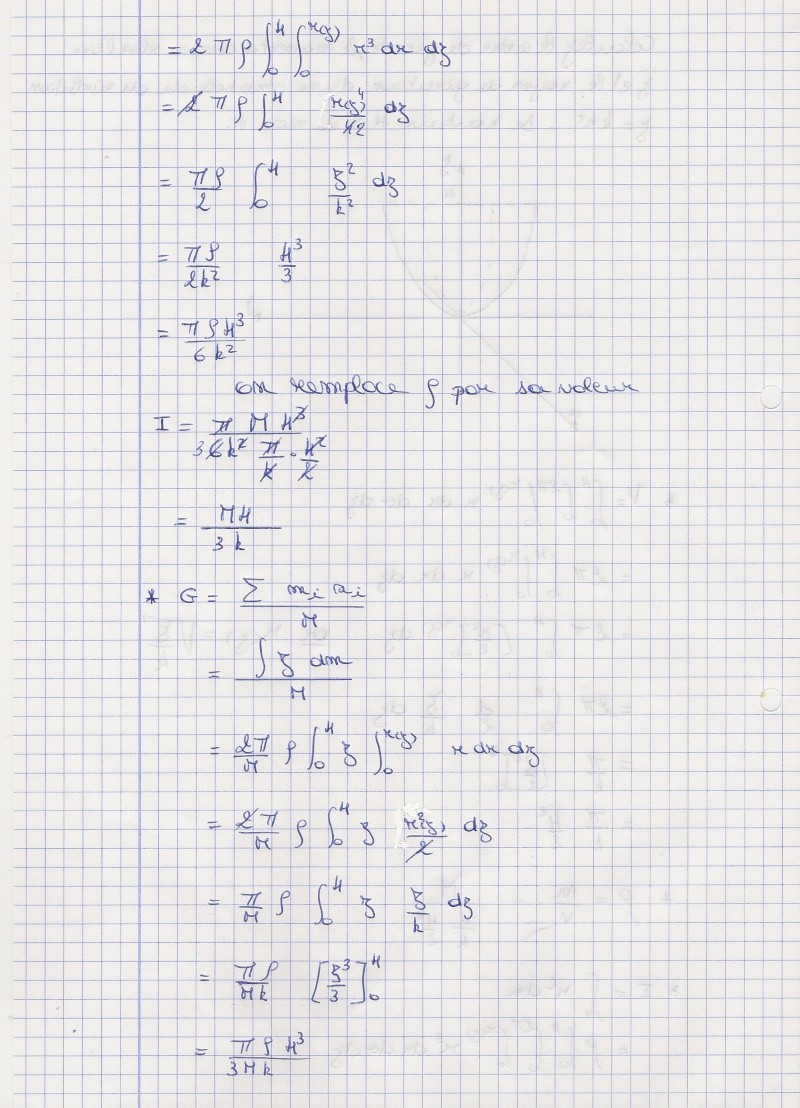 = 2 π ρ ∫₀ᴴ ∫₀ʳ⁽ᶻ⁾ r³ dr dz
= 2 π ρ ∫₀ᴴ r(z)⁴/42 dz
= πρ/2 ∫₀ᴴ z²/k² dz
= πρ/2k² H³/3
= πρH³/6k²
on remplace ρ par sa valeur
I = π M H³ / 3 6k² π/k · H²/2
= MH/3k
* G = Σ mᵢ xᵢ / M
= ∫ z dm / M
= 2π/M ρ ∫₀ᴴ z ∫₀ʳ⁽ᶻ⁾ r dr dz
= 2π/M ρ ∫₀ᴴ z r²(z)/2 dz
= π/M ρ ∫₀ᴴ z z/k dz
= πρ/Mk [z³/3]₀ᴴ
= πρH³/3Mk